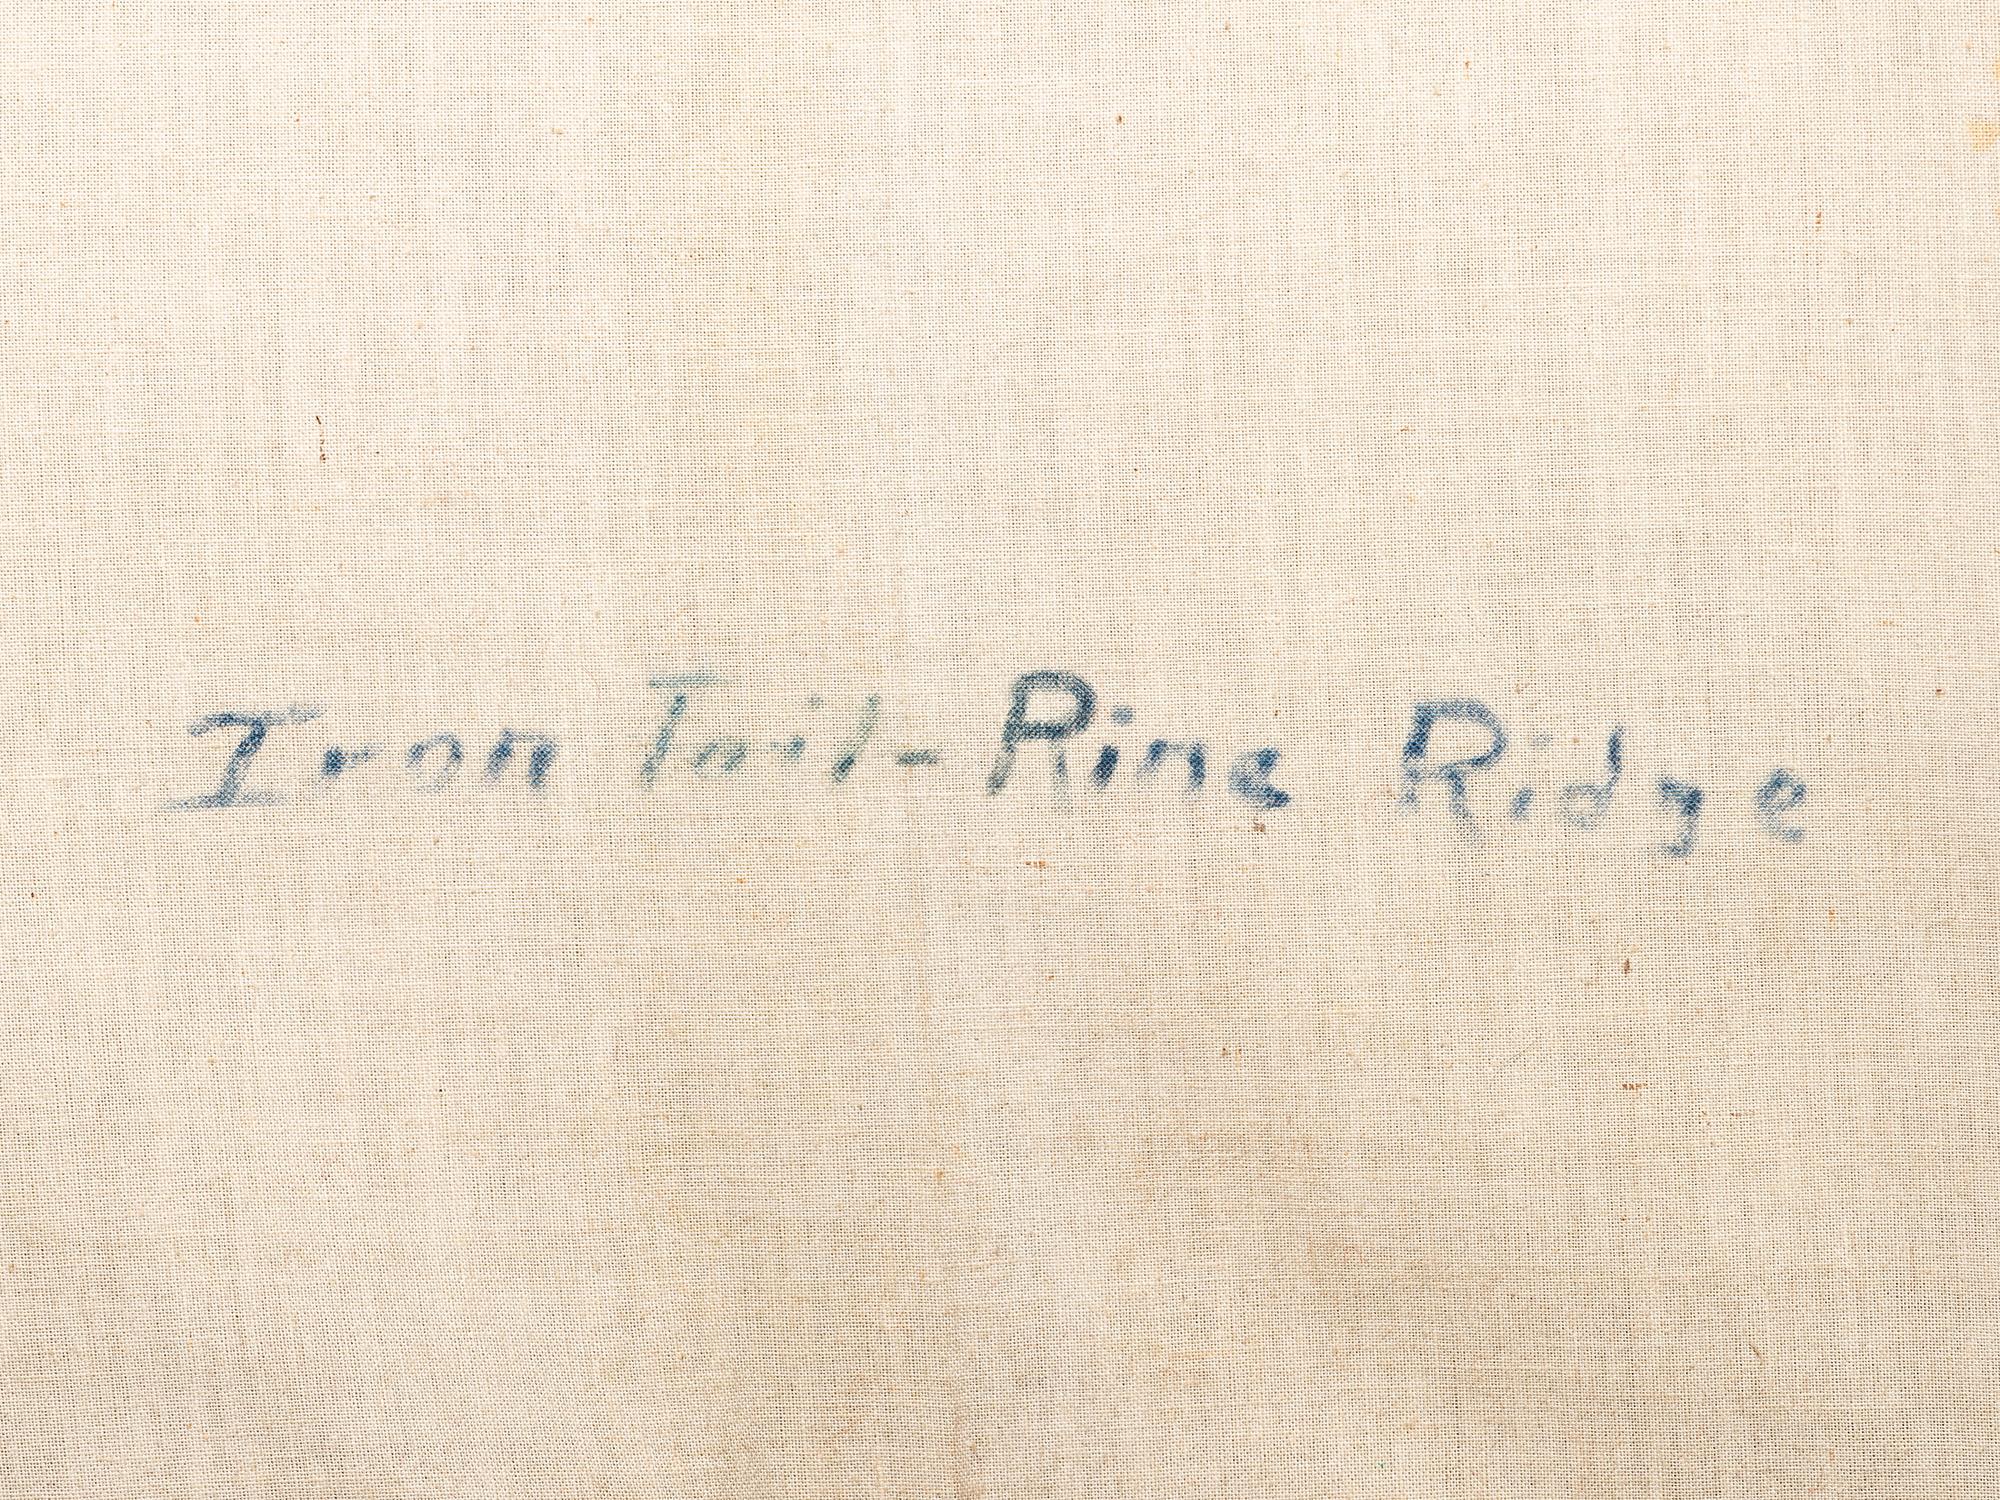 Iron Tail-Rine Ridge